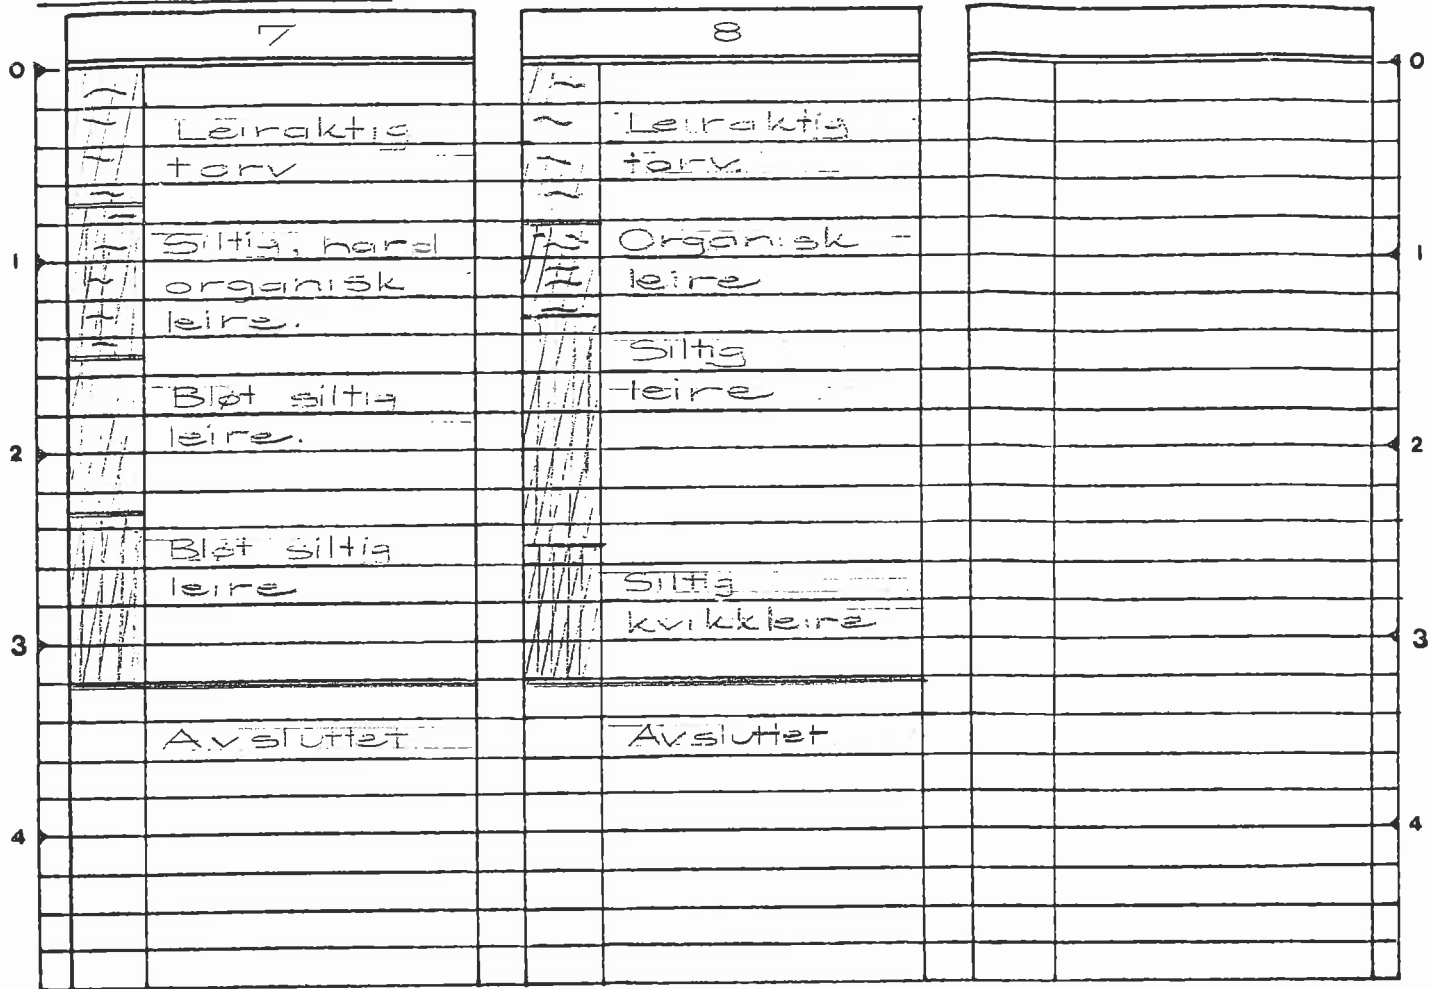 7
8
0
0
Leiraktig
torv
Siltig, hard
organisk
leire.
Bløt siltig
leire.
Bløt siltig
leire
Avsluttet
Leiraktig
torv.
Organisk
leire
Siltig
leire
Siltig
kvikkleire
Avsluttet
1
1
2
2
3
3
4
4